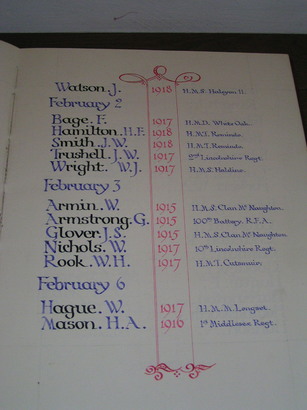 Watson. J. 1918 H.M.S. Halcyon II.
February 2
Bage. F. 1917 H.M.D. White Oak.
Hamilton. H.F. 1918 H.M.T. Remindo.
Smith. J.W. 1918 H.M.T. Remindo.
Trushell. J.W. 1917 2nd Lincolnshire Regt.
Wright. W.J. 1917 H.M.S.
February 3
Armin. W. 1915 H.M.S. Clan Mc Naughton.
Armstrong. G. 1915 100th Battery. R.F.A.
Glover. J.S. 1915 H.M.S. Clan Mc Naughton.
Nichols. W. 1917 10th Lincolnshire Regt.
Rook. W.H. 1917 H.M.T.
February 6
Hague. W. 1917 H.M.M. Longset.
Mason. H.A. 1916 1st Middlesex Regt.